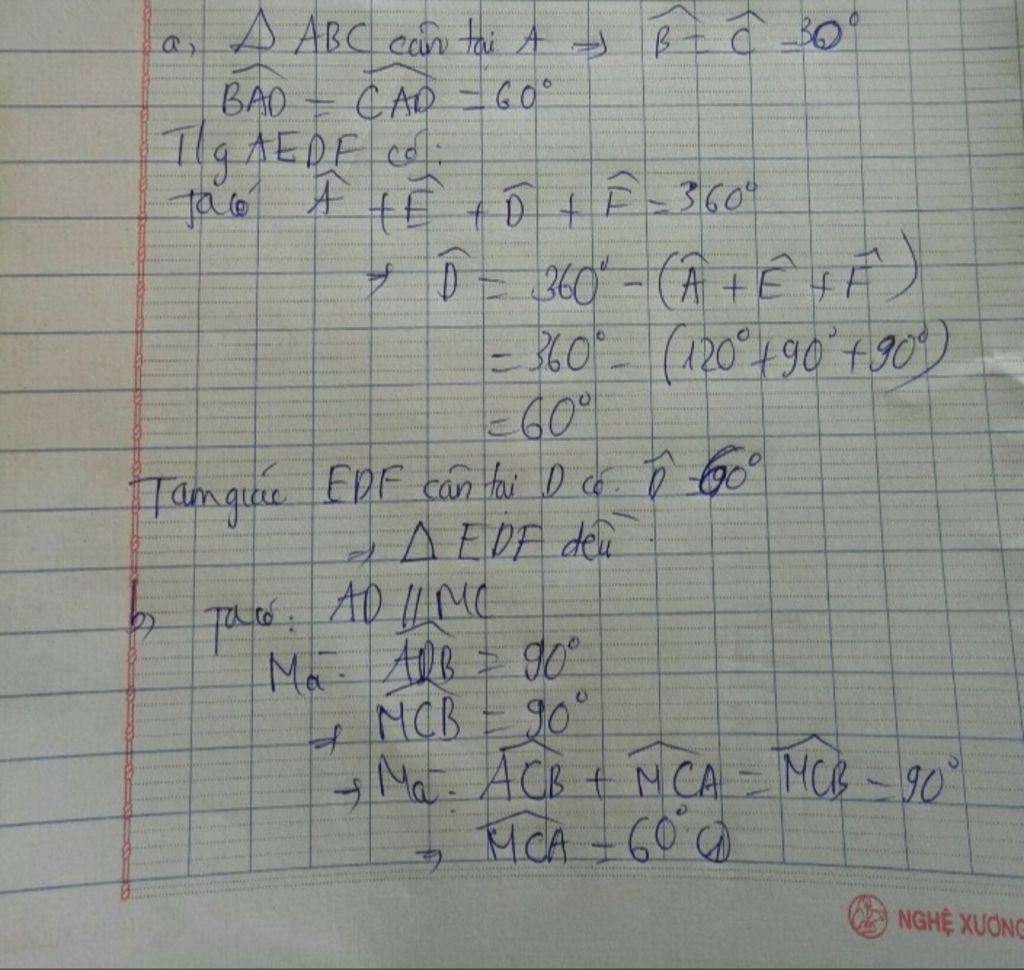 a, Δ ABC cân tại A ⇒ B̂ = Ĉ = 30°
BAD = CAD = 60°
T/g AEDF có:
Ta có Â + Ê + D̂ + F̂ = 360°
⇒ D̂ = 360° - (Â + Ê + F̂)
= 360° - (120° + 90° + 90°)
= 60°
Tam giác EDF cân tại D có: D̂ = 60°
⇒ Δ EDF đều.
b, Ta có: AD // MC
Mà: ADB = 90°
⇒ MCB = 90°
→ Mà: ACB + MCA = MCB = 90°
⇒ MCA = 60° (1)
NGHỆ XƯƠNG